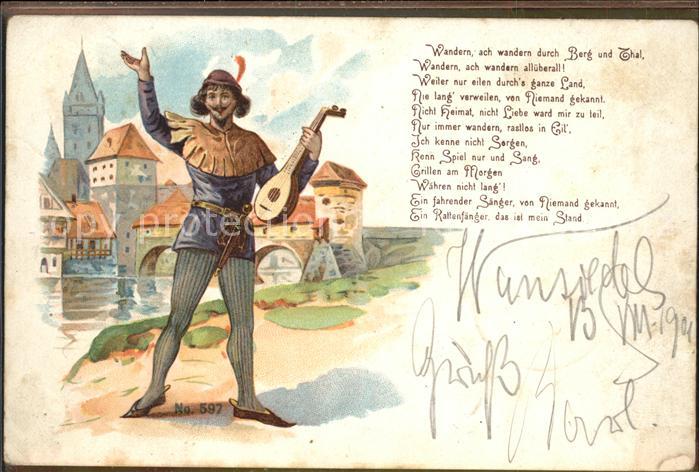 Wandern, ach wandern durch Berg und Thal,
Wandern, ach wandern allüberall!
Weiter nur eilen durch's ganze Land,
Nie lang' verweilen, von Niemand gekannt.
Nicht Heimat, nicht Liebe ward mir zu teil,
Nur immer wandern, rastlos in Eil',
Ich kenne nicht Sorgen,
Kenn Spiel nur und Sang,
Grillen am Morgen
Währen nicht lang'!
Ein fahrender Sänger, von Niemand gekannt,
Ein Rattenfänger, das ist mein Stand.
Wunsiedel
13 VIII. 1901
Gruß
Karl.
No. 597